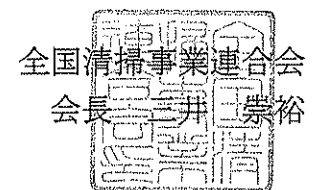 全国清掃事業連合会
会長 三井 崇裕